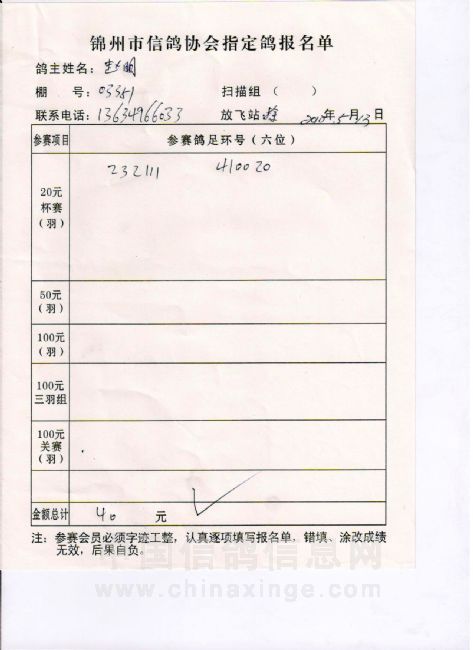 锦州市信鸽协会指定鸽报名单
鸽主姓名:
棚 号: 03351 扫描组 ( )
联系电话: 13634966033 放飞站 2010年5月13日
参赛项目 参赛鸽足环号(六位)
20元杯赛(羽) 232111 410020
50元(羽)
100元(羽)
100元三羽组
100元关赛(羽)
金额总计 40 元
注: 参赛会员必须字迹工整, 认真逐项填写报名单、错填、涂改成绩
无效, 后果自负。
中国信鸽信息网
www.chinaxinge.com